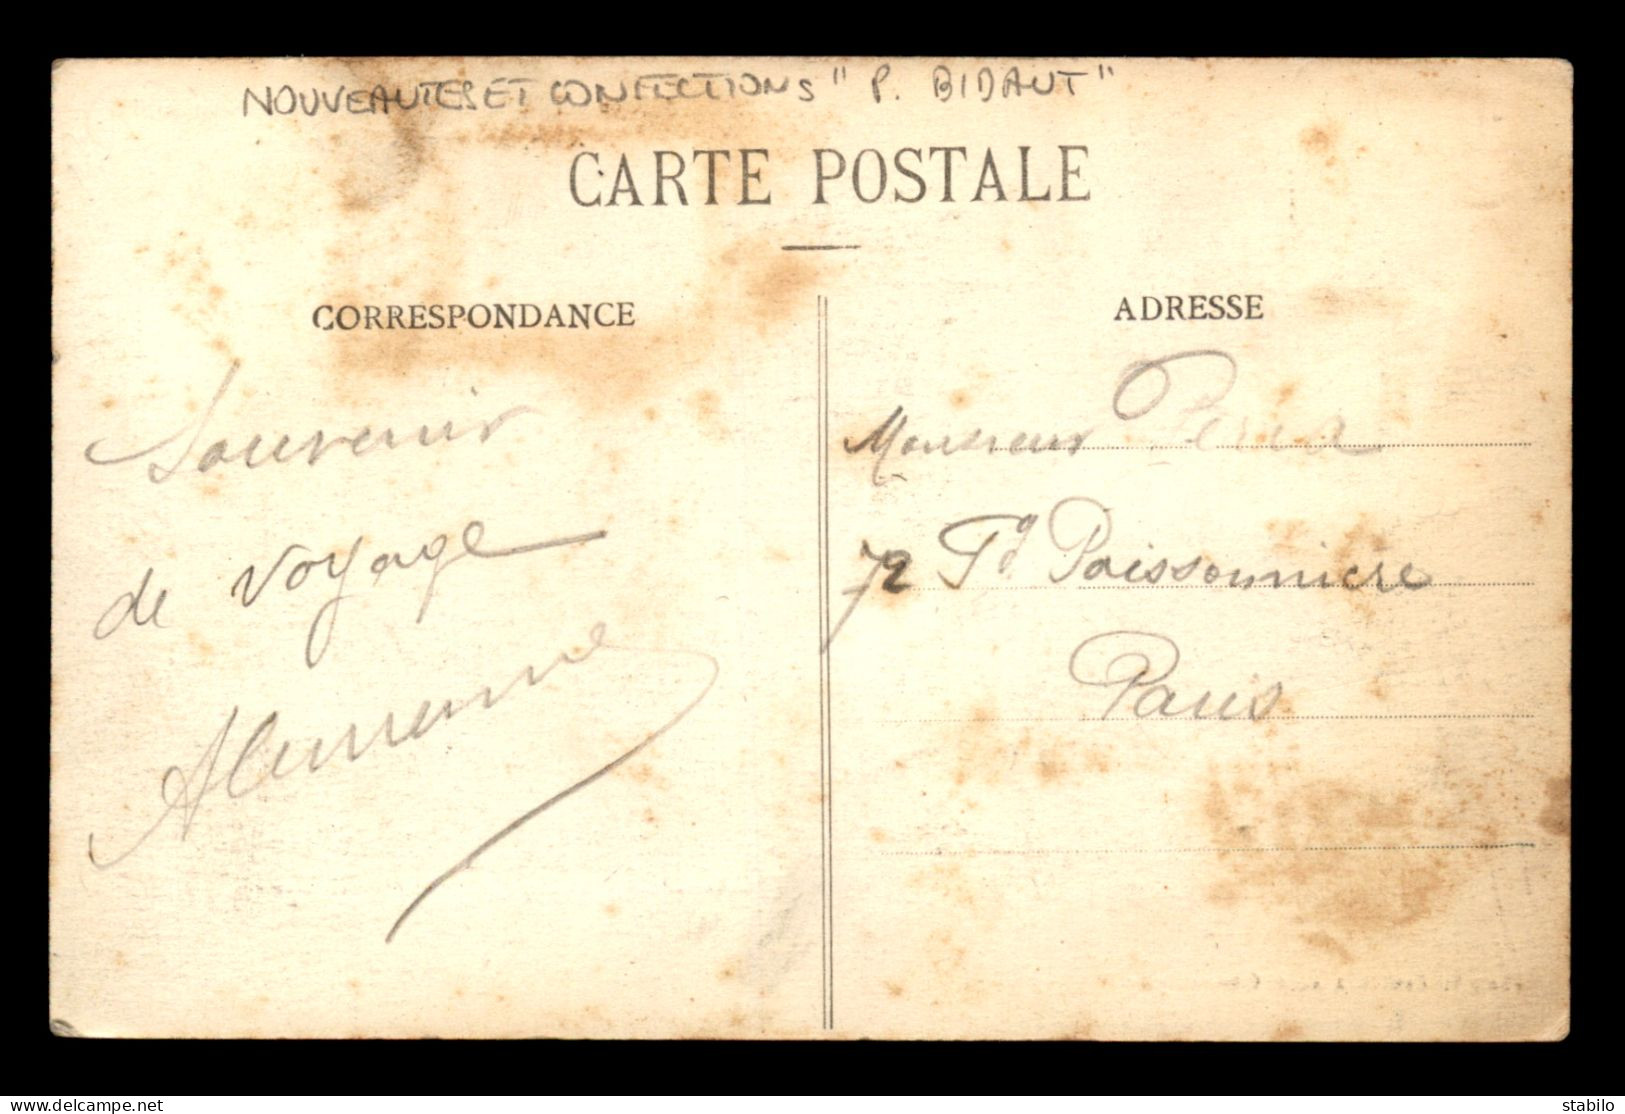 NOUVEAUTES ET CONFECTIONS " P. BIDAUT "
CARTE POSTALE
CORRESPONDANCE
ADRESSE
Souvenir
de voyage
Monsieur
72 Fg Poissonnière
Paris
Delcampe.net
stabilo